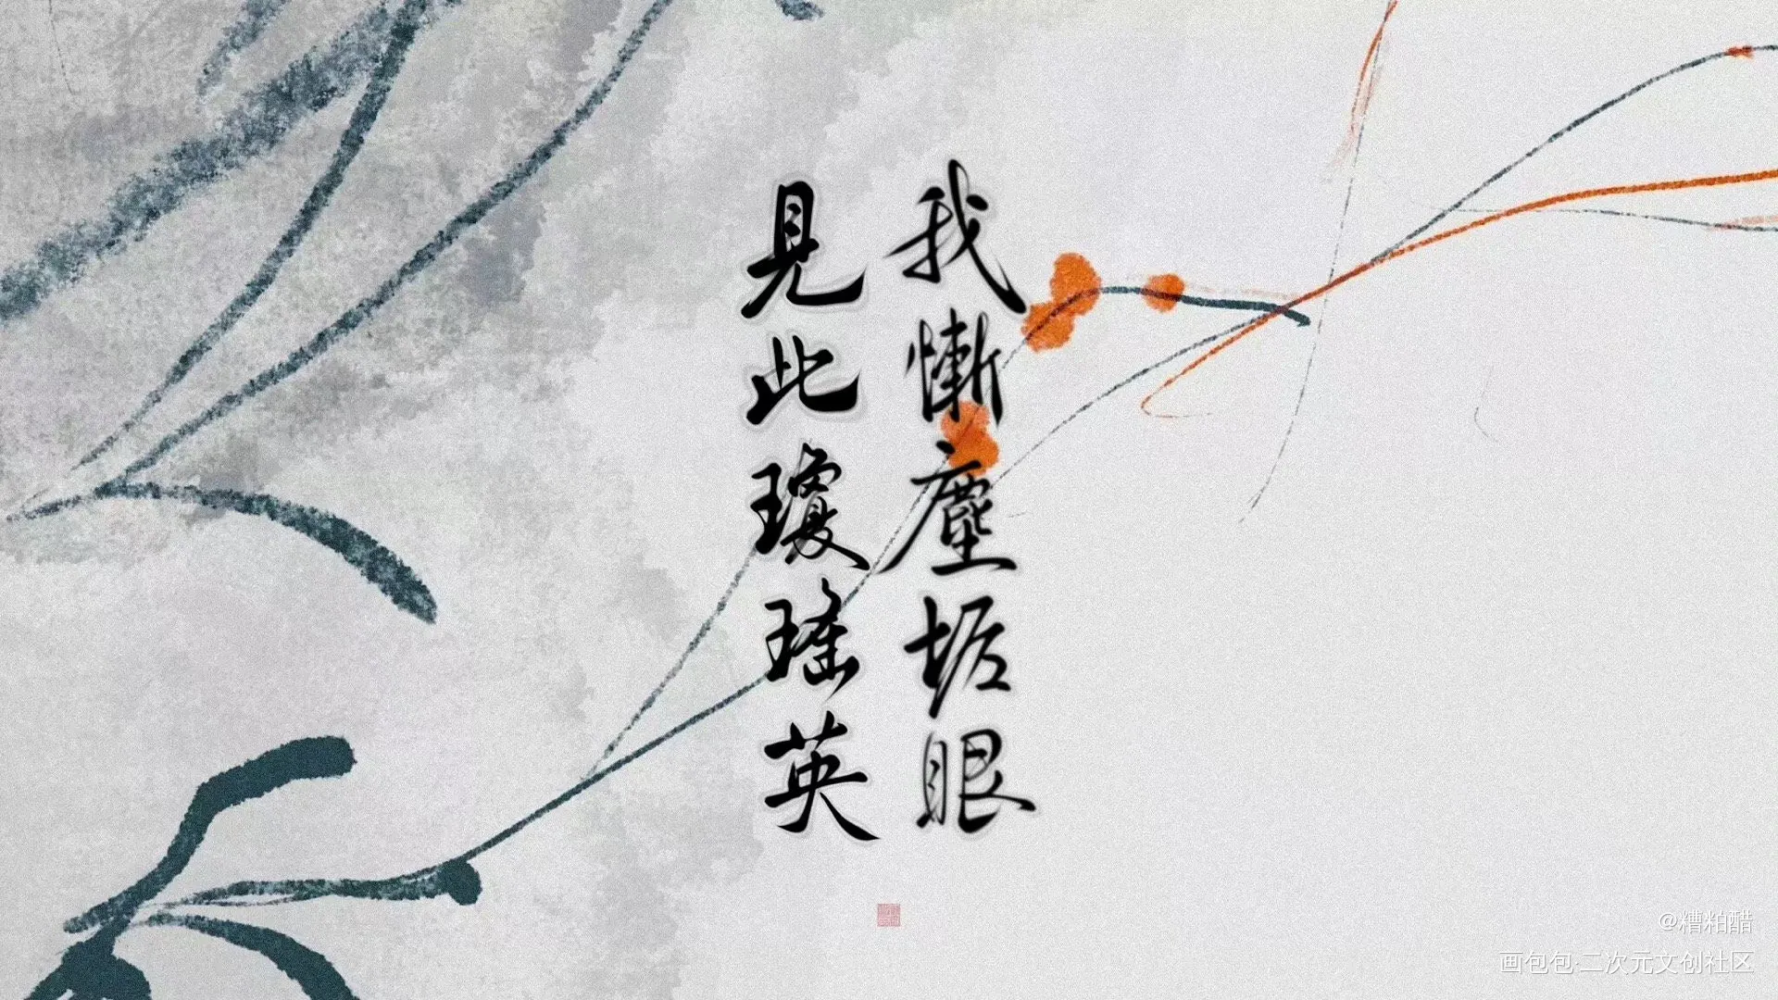 我慚塵垢眼
見此瓊瑤英
@糟粕醋
画包包·二次元文创社区